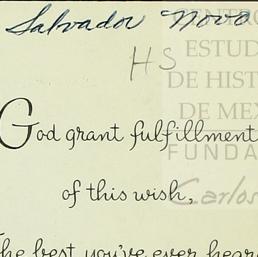 Salvador Novo
HS
God grant fulfillment
of this wish,
The best you've ever hear
ESTUD
DE HIST
DE ME
FUNDA
Carlos